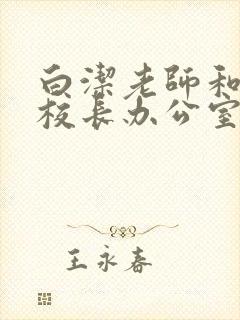 白潔老師和
校長办公室
王永春